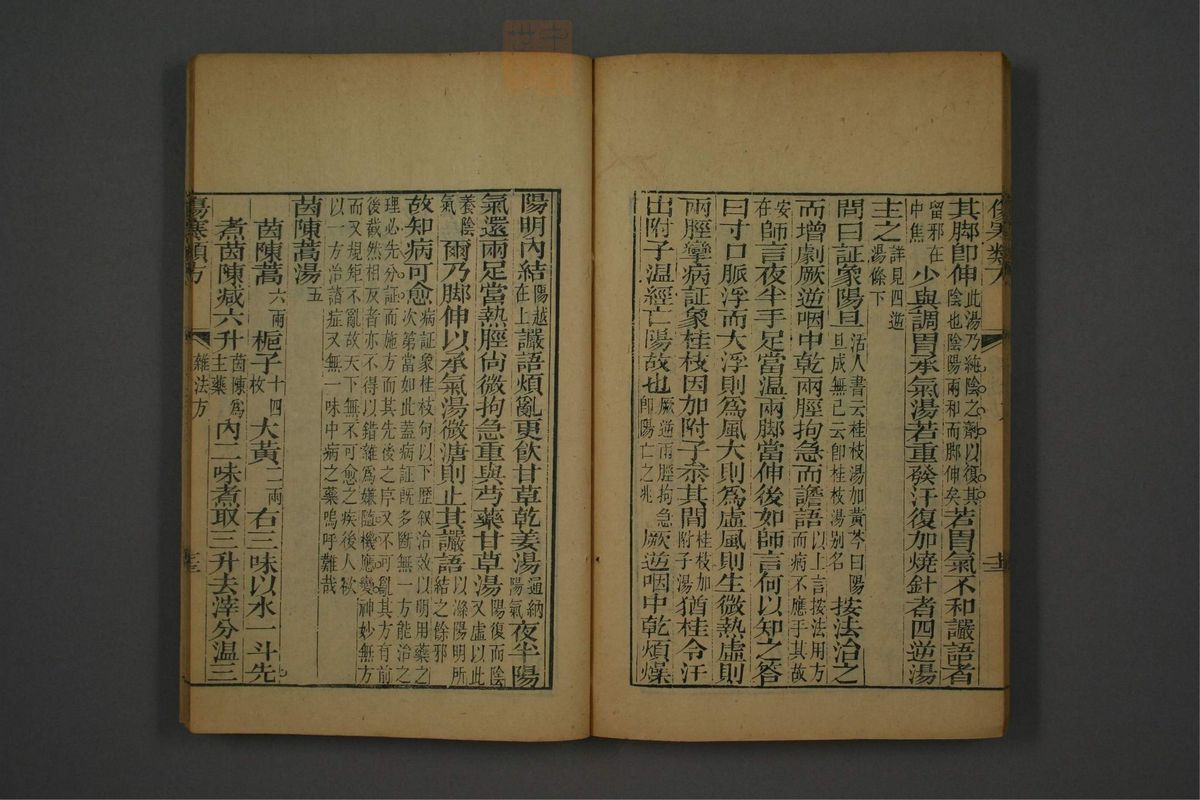 其脚即伸此湯乃純陰之劑以復其陰也陰陽兩和而脚伸矣若胃氣不和讝語者
留邪在中焦少與調胃承氣湯若重發汗復加燒針者四逆湯
主之詳見四逆湯條下
問曰証象陽旦活人書云桂枝湯加黃芩曰陽旦成無己云即桂枝湯別名按法治之
而增劇厥逆咽中乾兩脛拘急而譫語以上言按法用方而病不應于其故
安在師言夜半手足當温兩脚當伸後如師言何以知之答
曰寸口脈浮而大浮則為風大則為虛風則生微熱虛則
兩脛攣病証象桂枝因加附子叅其間桂枝加附子湯猶桂令汗
出附子温經亡陽故也厥逆兩脛拘急即陽亡之兆厥逆咽中乾煩燥
陽明內結陽越在上讝語煩亂更飲甘草乾姜湯通納陽氣夜半陽
氣還兩足當熱脛尚微拘急重與芍藥甘草湯陽復而陰又虛以此
養陰氣爾乃脚伸以承氣湯微溏則止其讝語以滌陽明所結之餘邪
故知病可愈病証象桂枝句以下歷叙治效以明用藥之次第當如此蓋病証旣多斷無一方能治之
理必先分証而施方而其先後之序又不可亂其方有前後截然相反者亦不得以錯雜為嫌隨機應變神妙無方
而又規矩不亂故天下無不可愈之疾後人欲以一方治諸症又無一味中病之藥嗚呼難哉
茵陳蒿湯五
茵陳蒿六兩 梔子十四枚 大黃二兩 右三味以水一斗先
煮茵陳減六升茵陳為主藥內二味煮取三升去滓分温三
傷寒類方 雜法方